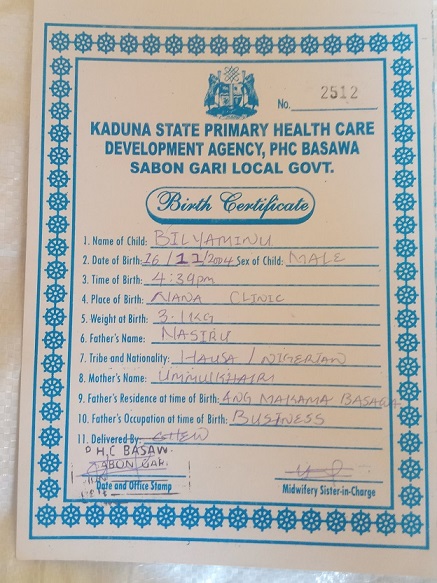 No. 2512
KADUNA STATE PRIMARY HEALTH CARE
DEVELOPMENT AGENCY, PHC BASAWA
SABON GARI LOCAL GOVT.
Birth Certificate
1. Name of Child: BILYAMINU
2. Date of Birth: 26/11/2004 Sex of Child: MALE
3. Time of Birth: 4:39pm
4. Place of Birth: NANA CLINIC
5. Weight at Birth: 3.1KG
6. Father's Name: NASIRU
7. Tribe and Nationality: HAUSA / NIGERIAN
8. Mother's Name: UMMULKHAIRI
9. Father's Residence at time of Birth: ANG MAKAMA BASAWA
10. Father's Occupation at time of Birth: BUSINESS
11. Delivered By: CHEW
P.H.C BASAW
SABON GARI
Date and Office Stamp
Midwifery Sister-in-Charge